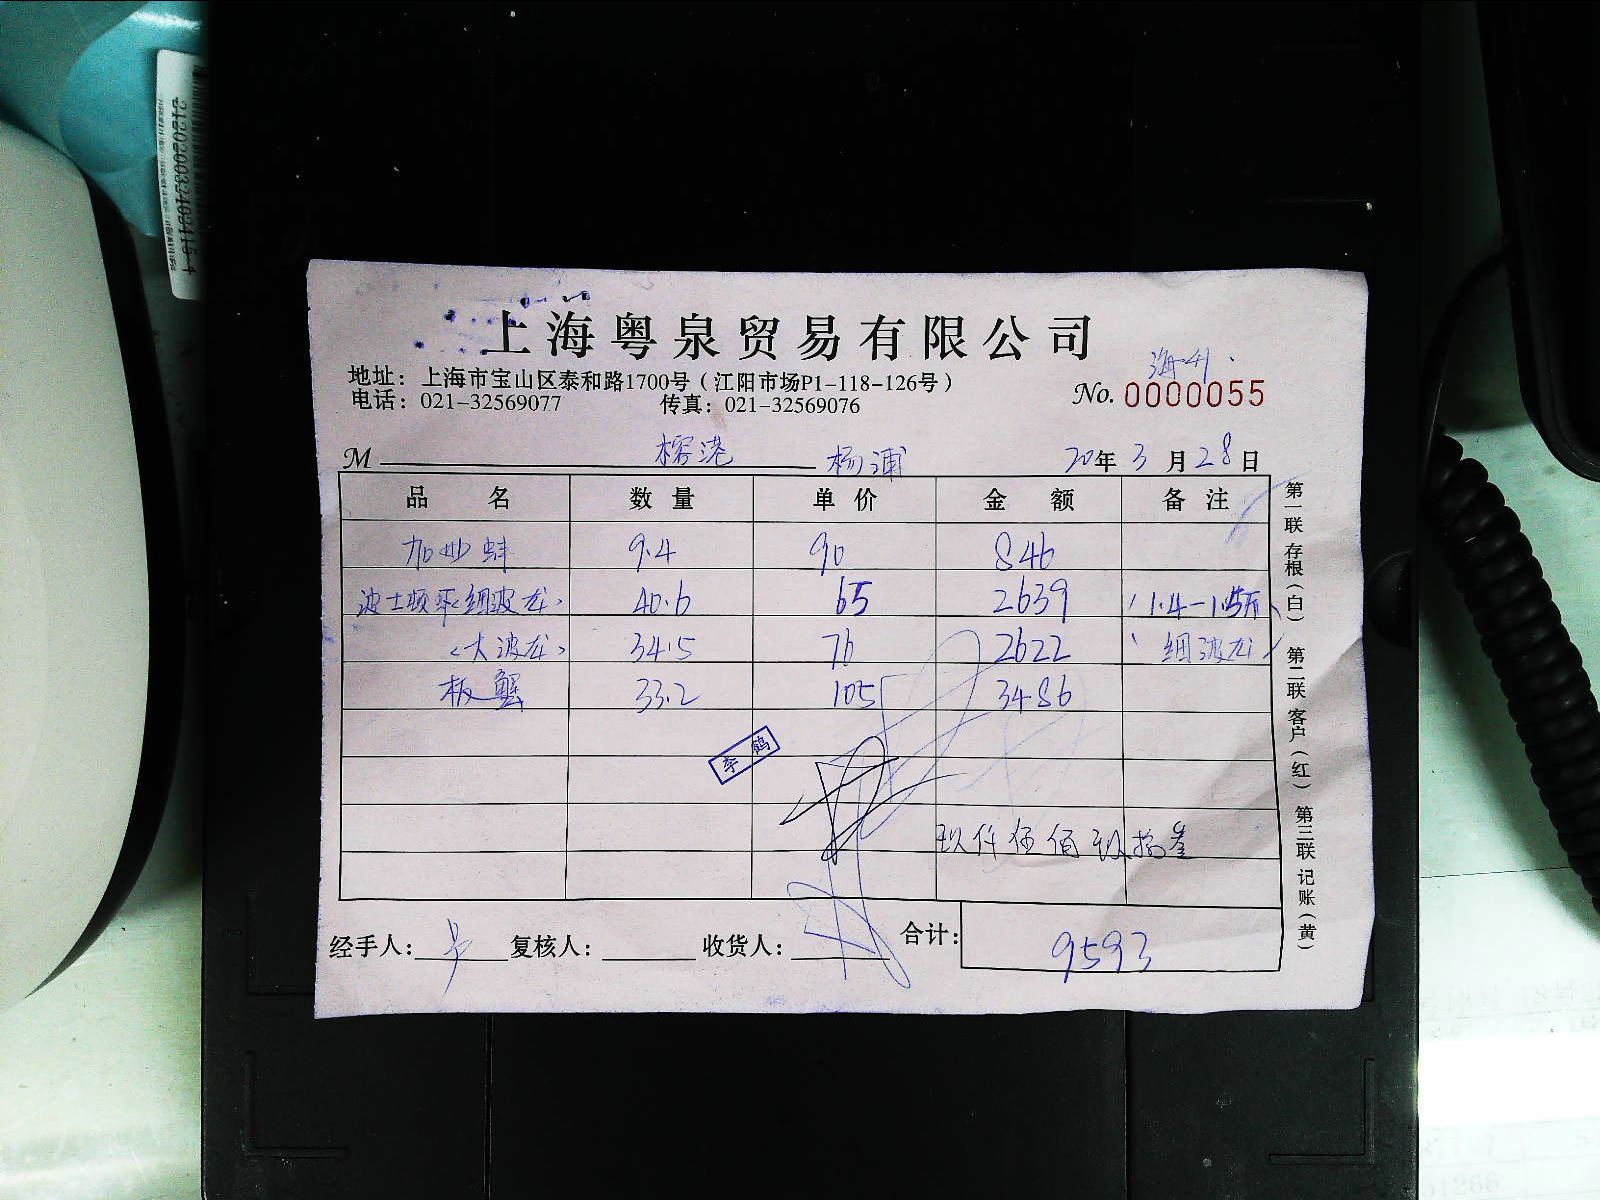 上海粤泉贸易有限公司
地址：上海市宝山区泰和路1700号（江阳市场P1-118-126号）
电话：021-32569077 传真：021-32569076
No. 0000055
M 榕港 杨浦 20年3月28日
品名 数量 单价 金额 备注
加州蚌 9.4 90 846
40.6 65 2639
〈大波龙〉 34.5 76 2622 细波龙
板蟹 33.2 105 3486
李鹤
玖仟伍佰玖拾叁
经手人： 复核人： 收货人： 合计： 9593
第一联 存根（白） 第二联 客户（红） 第三联 记账（黄）
3120200322409415-1